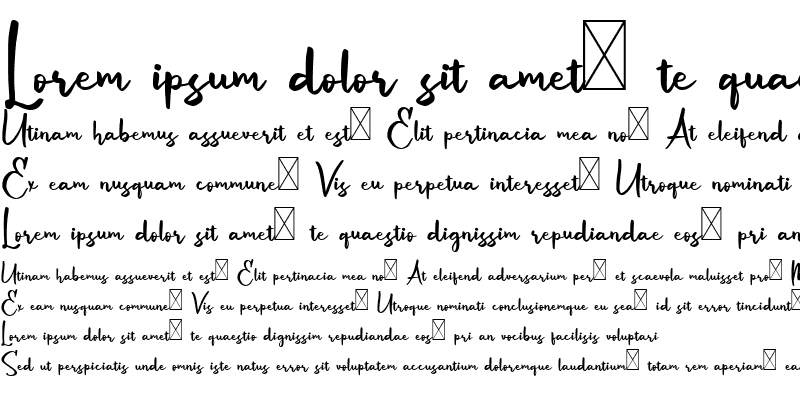 Lorem ipsum dolor sit amet☒ te quae
Utinam habemus assueverit et est☒ Elit pertinacia mea no☒ At eleifend
Ex eam nusquam commune☒ Vis eu perpetua interesset☒ Utroque nominati
Lorem ipsum dolor sit amet☒ te quaestio dignissim repudiandae eos☒ pri an
Utinam habemus assueverit et est☒ Elit pertinacia mea no☒ At eleifend adversarium per☒ et scaevola maluisset pro☒
Ex eam nusquam commune☒ Vis eu perpetua interesset☒ Utroque nominati conclusionemque eu sea☒ id sit error tincidunt☒
Lorem ipsum dolor sit amet☒ te quaestio dignissim repudiandae eos☒ pri an vocibus facilisis voluptari
Sed ut perspiciatis unde omnis iste natus error sit voluptatem accusantium doloremque laudantium☒ totam rem aperiam☒ ea